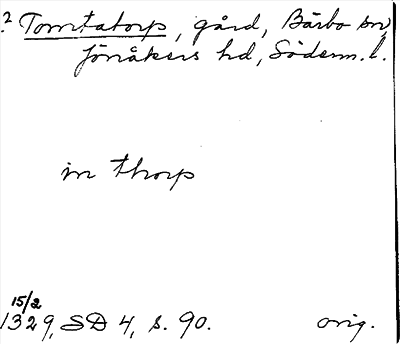 ? Tomtatorp, gård, Bärbo sn,
Jönåkers hd, Söderm. l.
in thorp
15/2
1329, SD 4, s. 90. orig.